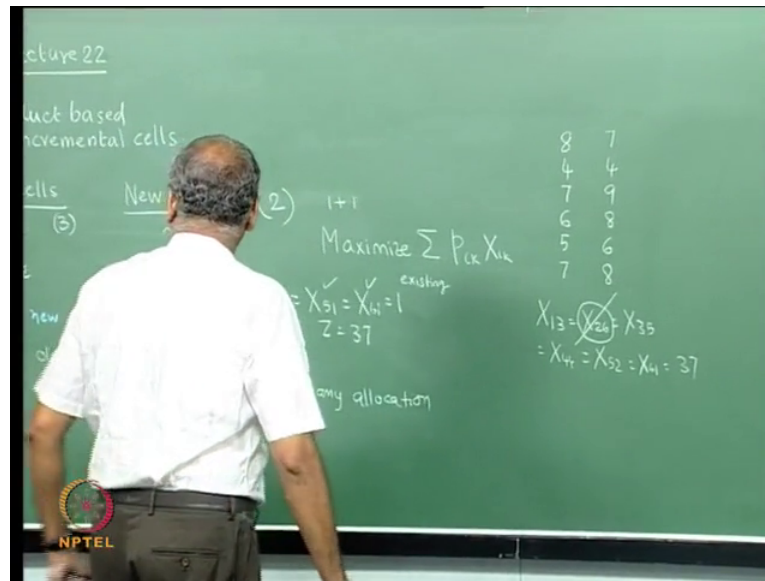 cture 22
uct based
ncremental cells
ells
(3)
New (2) 1+1
Maximize ∑ Pik Xik
existing
= X51 = X61 = 1
Z = 37
new
any allocation
8 7
4 4
7 9
6 8
5 6
7 8
X13 = X26 = X35
= X44 = X52 = X61 = 37
NPTEL